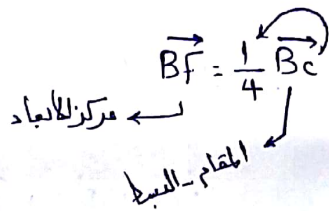 BF = 1/4 Bc
مركز الأبعاد
المقام - البسط